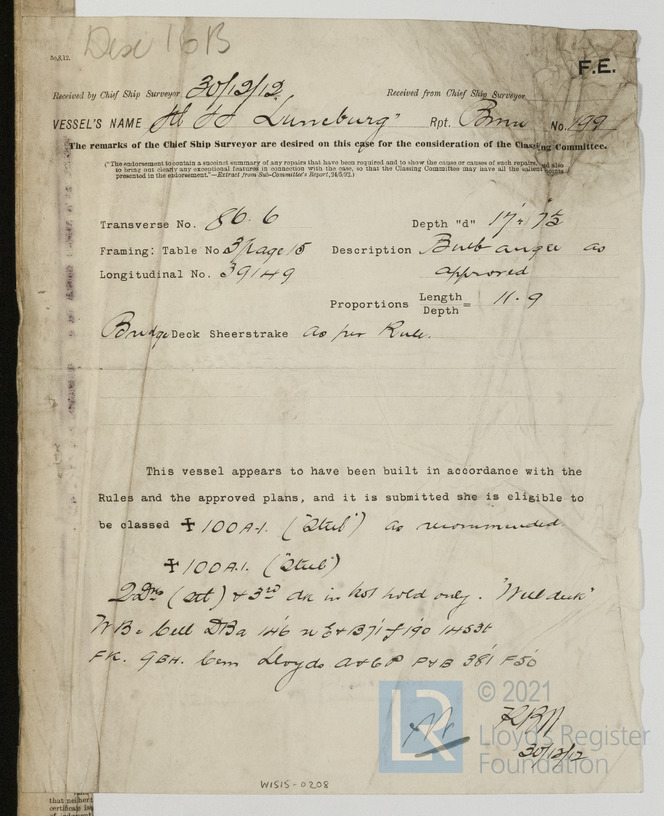 Dec 16B
5a,8.12.
F.E.
Received by Chief Ship Surveyor 30/12/12. Received from Chief Ship Surveyor
VESSEL'S NAME "Luneburg" Rpt. Brmn No. 199
The remarks of the Chief Ship Surveyor are desired on this case for the consideration of the Classing Committee.
("The endorsement to contain a succinct summary of any repairs that have been required and to show the cause or causes of such repairs, and also
to bring out clearly any exceptional features in connection with the case, so that the Classing Committee may have all the salient points
presented in the endorsement."—Extract from Sub-Committee's Report, 24/5/92.)
Transverse No. 86.6 Depth "d" 17'-
Framing: Table No 3 page 15 Description Bulb angle as
Longitudinal No. 39149 approved
Proportions Length
Depth = 11.9
Bridge Deck Sheerstrake as per Rule.
This vessel appears to have been built in accordance with the
Rules and the approved plans, and it is submitted she is eligible to
be classed ✠ 100A-1. ("Steel") as recommended.
✠ 100A.1. ("Steel")
2 Dks (Stl) & 3rd dk in hold only. "Well deck"
WB = Cell DBa 146' 190' 1453t
FK. 9BH. Cem Lloyds A&CP P&B 38' F50'
30/12/12
W1515-0208
© 2021
LR
Lloyd's Register
Foundation
that neither
certificate is